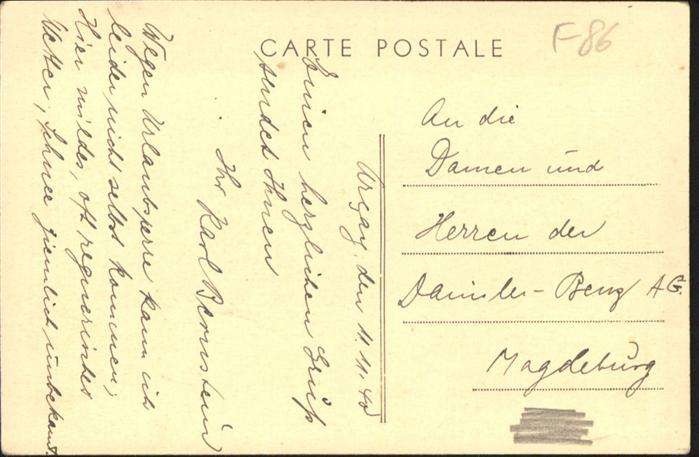 CARTE POSTALE
F-86
An die
Damen und
Herren der
Daimler-Benz AG.
Magdeburg
Urçay, den 11.11.40
Einen herzlichen Gruß
sendet Ihnen
Ihr Karl Bernstein
Wegen Urlaubsperre kann ich
leider nicht selbst kommen,
Hier mildes, oft regnerisches
Wetter, Schnee ziemlich unbekannt.